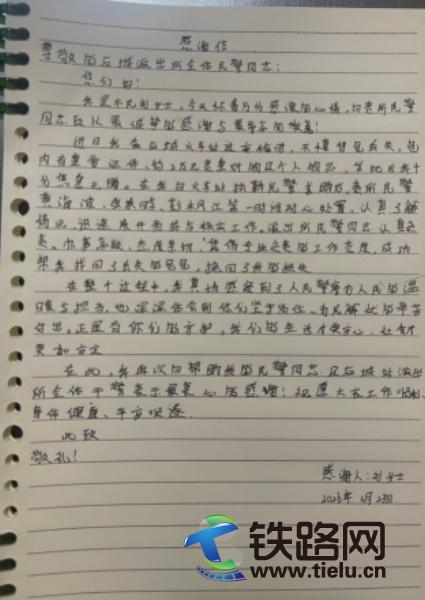 感谢信
尊敬的白城派出所全体民警同志：
您们好！
我是市民刘女士，今天怀着万分感激的心情，向贵所民警
同志致以最诚挚的感谢与最崇高的敬意！
近日我在白城火车站这方偷闲，不慎背包丢失，包
内有重要证件、约2万元贵重财物及个人物品，发现后我十
分焦急无助。在我向火车站执勤民警求助后，贵所民警
第一时间耐心处置、认真了解
情况，迅速展开查找与核实工作。派出所民警同志认真负
责、作事高效、态度亲切，凭借专业负责的工作态度，成功
帮我找回了丢失的背包，挽回了我的损失
在整个过程中，我真切感受到了人民警察为人民的温
暖与担当，也深深体会到你们坚守岗位、为民解忧的辛苦
付出。正是有你们的守护，我们的生活才更安心、社会才
更加安定
在此，我再次向帮助我的民警同志及白城站派出
所全体干警表示最衷心的感谢！祝愿大家工作顺利、
身体健康、平安顺遂
此致
敬礼！
感谢人：刘女士
2026年 月23日
铁路网
www.tielu.cn